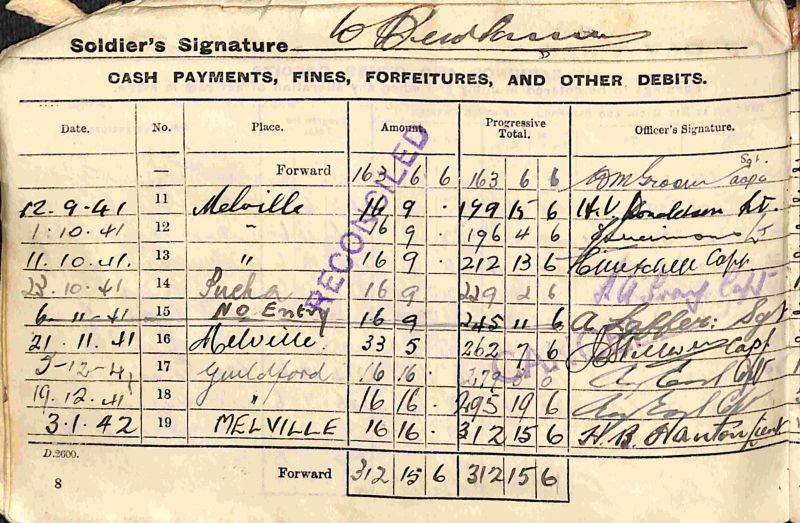 Soldier's Signature
CASH PAYMENTS, FINES, FORFEITURES, AND OTHER DEBITS.
Date. No. Place. Amount. Progressive Total. Officer's Signature.
— Forward 163 6 6 163 6 6 Sgt.
12.9.41 11 Melville 16 9 . 179 15 6 H.V. Donaldson Lt.
1.10.41 12 " 16 9 . 196 4 6
11.10.41. 13 " 16 9 . 212 13 6 Capt
23.10.41 14 Pucka 16 9 229 2 6 Capt
6-11-41 15 No Entry 16 9 245 11 6 A Laffer. Sgt
21.11.41 16 Melville. 33 5 262 7 6 Capt
3-12-41 17 Guildford 16 16 . 279 Capt
19.12.41 18 " 16 16 . 295 19 6 Capt
3.1.42 19 MELVILLE 16 16 . 312 15 6 H. B. Hanton Lieut
RECONCILED
D.2600.
Forward 312 15 6 312 15 6
8